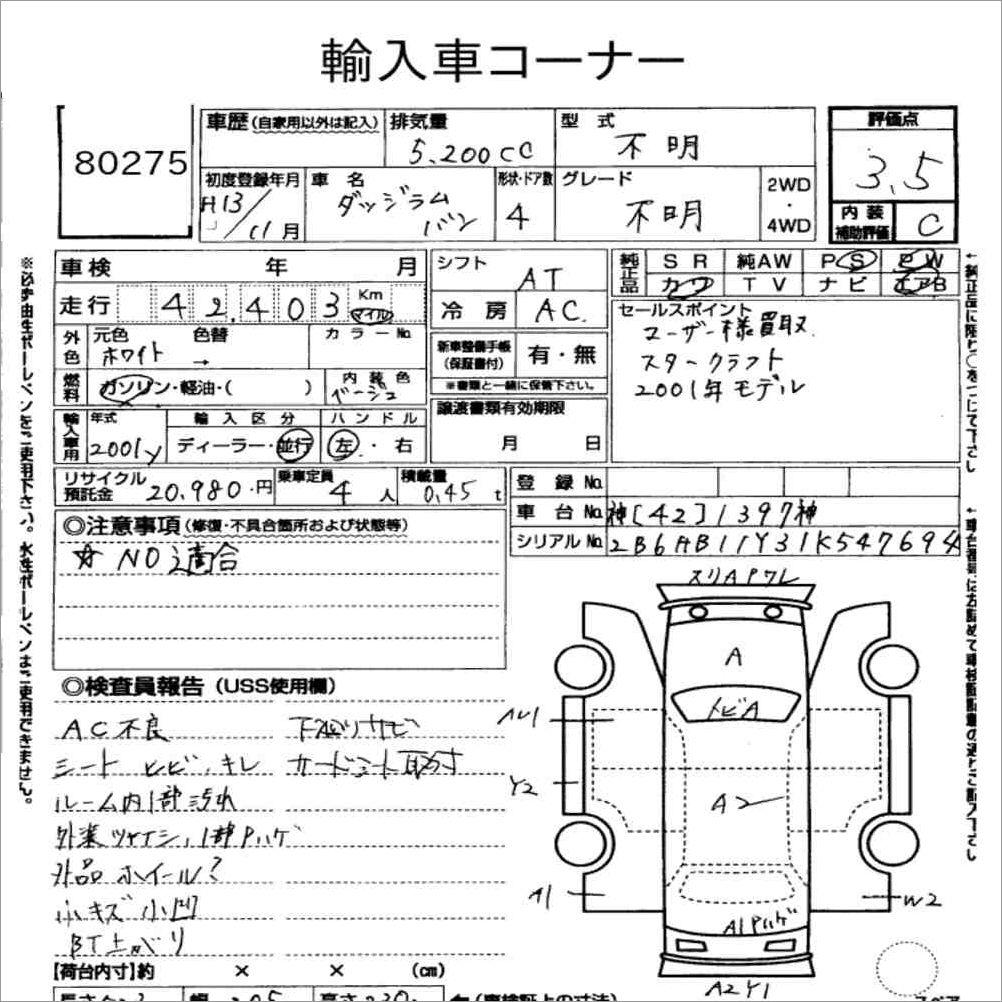 輸入車コーナー
80275
車歴(自家用以外は記入)
排気量
5.200cc
型式
不明
評価点
3.5
初度登録年月
H13/11月
車名
ダッジラム
バン
形状・ドア数
4
グレード
不明
2WD
・
4WD
内装
補助評価
C
車検 年 月
シフト
AT
純正品
SR 純AW PS PW
カワ TV ナビ エアB
走行 42.403 Km マイル
冷房 AC.
セールスポイント
ユーザー様買取
スタークラフト
2001年モデル
外色
元色
ホワイト
色替
→
カラーNo.
新車整備手帳
(保証書付)
有・無
※書類と一緒に保管下さい。
燃料
ガソリン・軽油・( )
内装色
ベージュ
譲渡書類有効期限
月 日
輸入車用
年式
2001y
輸入区分
ディーラー・並行
ハンドル
左・右
リサイクル
預託金
20.980.円
乗車定員
4人
積載量
0.45t
登録No.
車台No. 神[42]1397神
シリアルNo. 2B6HB11Y31K547694
◎注意事項(修復・不具合箇所および状態等)
☆NO2適合
◎検査員報告(USS使用欄)
AC不良
シートヒビ、キレ
ルーム内1部汚れ
外装ツヤナシ、1部Pハゲ
社品ホイール?
小キズ小凹
BT上がり
下廻りサビ
サードシート取外
スリAPワレ
A
トビA
AU1
Y2
A2
A1
W2
A1Pハゲ
A2Y1
【荷台内寸】約 × × (cm)
※必ず油性ボールペンをご使用下さい。水性ボールペンはご使用できません。
↑純正品に限り○をつけて下さい